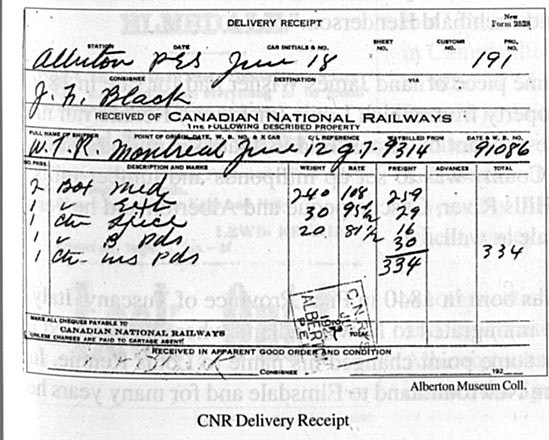 DELIVERY RECEIPT
New
Form 2528
STATION DATE CAR INITIALS & NO. SHEET NO. CUSTOMS NO. PRO. NO.
Alberton PEI June 18 191
CONSIGNEE DESTINATION VIA
J. A. Black
RECEIVED OF CANADIAN NATIONAL RAILWAYS
THE FOLLOWING DESCRIBED PROPERTY
FULL NAME OF SHIPPER POINT OF ORIGIN, DATE, W. B., NO. & X CAR C/L REFERENCE WAYBILLED FROM DATE & W. B. NO.
W. T. R. Montreal June 12 G.T. 9314 91086
NO. PKGS. DESCRIPTION AND MARKS WEIGHT RATE FREIGHT ADVANCES TOTAL
2 Box Med 240 108 259
1 " Extr 30 95½ 29
1 Ctn Spice 20 81½ 16
1 " B. Pds 30
1 Ctn Ins Pds 334 334
MAKE ALL CHEQUES PAYABLE TO
CANADIAN NATIONAL RAILWAYS
(UNLESS CHARGES ARE PAID TO CARTAGE AGENT)
C.N. RYS
ALBERTON
P.E.I.
RECEIVED IN APPARENT GOOD ORDER AND CONDITION
CONSIGNEE 192
Alberton Museum Coll.
CNR Delivery Receipt